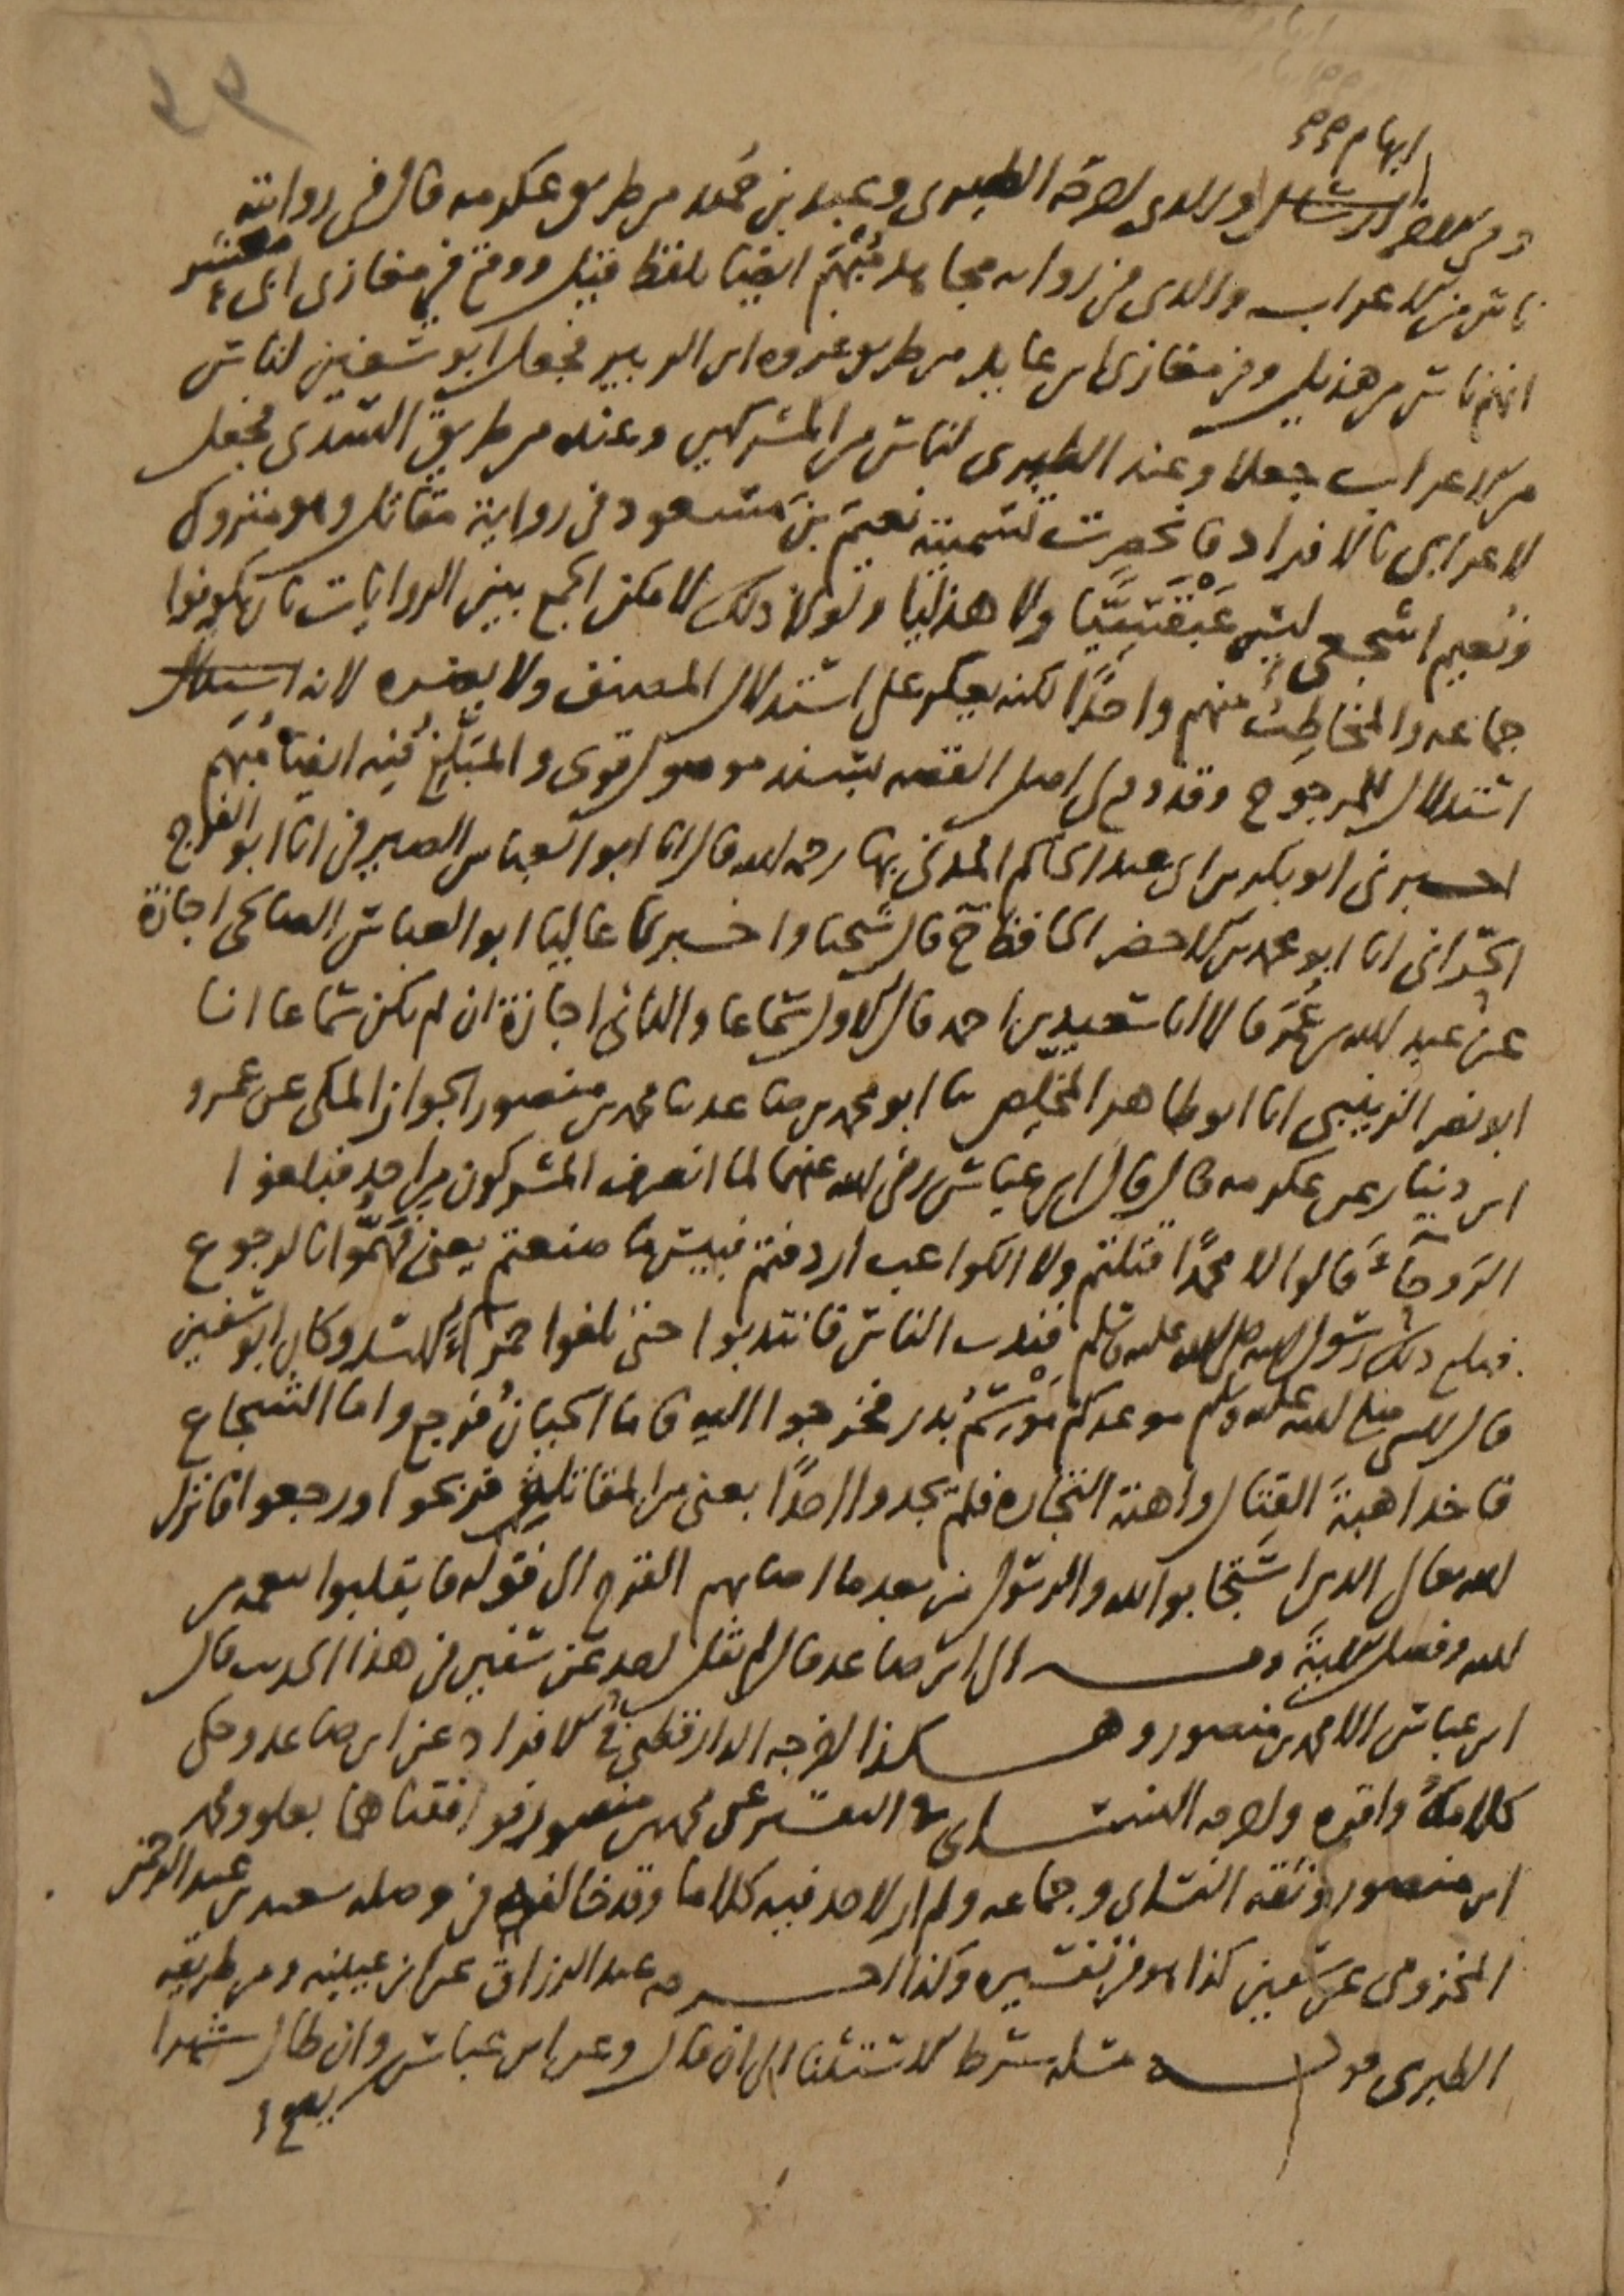 ٤٩
ابهام
وفي الارسال والذي اخرجه الطبري وعبد بن حميد من طريق عكرمه قال في روايته
ناس من الاعراب والذي في روايه مجاهد مبهم ايضا بلفظ قيل ووقع في مغازي ابي معشر
انهم ناس من هذيل وفي مغازي ابن عايذ من طريق عروه ابن الزبير فجعل ابو سفين لناس
من الاعراب جعلا وعند الطبري لناس من المشركين وعنده من طريق السدي فجعل
لاعرابي بالافراد فانحصرت تسمية نعيم بن مسعود في رواية مقاتل وهو متروك
ونعيم اشجعي ليس ولا هذليا ولولا ذلك لامكن الجمع بين الروايات بان يكونوا
جماعه والمخاطب منهم واحدا لكنه يعكر على استدلال المصنف ولا يضره لانه
استدلال للمرجوح وقد وقع لي اصل القصه بسند موصول قوي والمبلغ فيه ايضا مبهم
اخبرني ابو بكر بن ابي عبد الحاكم المدني بها رحمه الله قال انا ابو العباس الصيرفي انا ابو الفرج
الحراني انا ابو محمد بن الاخضر الحافظ ح قال شيخنا واخبرنا عاليا ابو العباس الصالحي اجازة
عن عبد الله بن عمر قالا انا سعيد بن احمد قال الاول سماعا والثاني اجازة ان لم يكن سماعا انا
ابو نصر الزينبي انا ابو طاهر المخلص نا ابو محمد بن صاعد نا محمد بن منصور الجواز المكي عن عمرو
ابن دينار عن عكرمه قال قال ابن عباس رضي الله عنهما لما انصرف المشركون من احد فبلغوا
الروحآء قالوا لا محمدا قتلتم ولا الكواعب اردفتم فبيس ما صنعتم يعني فهموا بالرجوع
فبلغ ذلك رسول الله صلى الله عليه وسلم فندب الناس فانتدبوا حتى بلغوا حمرآء الاسد وكان ابو سفين
قال للنبي صلى الله عليه وسلم موعدكم موسم بدر فخرجوا اليه فاما الجبان فرجع واما الشجاع
فاخذ اهبة القتال واهبة التجاره فلم يجدوا احدا يعني من المقاتلة فربحوا ورجعوا فانزل
الله تعالى الذين استجابوا لله والرسول من بعد ما اصابهم القرح الى قوله فانقلبوا بنعمه من
الله وفضل الاية وبه الى ابن صاعد قال لم يقل احد عن سفين في هذا الحديث قال
ابن عباس الا محمد بن منصور وهكذا اخرجه الدارقطني في الافراد عن ابن صاعد وحكى
كلامه واقره واخرجه النسائي في التفسير عن محمد بن منصور فوافقناهما بعلو ومحمد
ابن منصور وثقه النسائي وجماعه ولم ار لاحد فيه كلاما وقد خالفه في وصله سعيد بن عبد الرحمن
المخزومي عن سفين كذا هو في تفسيره وكذا اخرجه عبد الرزاق عن ابن عيينه ومن طريقه
الطبري قوله مسله شرط الاستثنا الى ان قال وعن ابن عباس وان طال شهرا